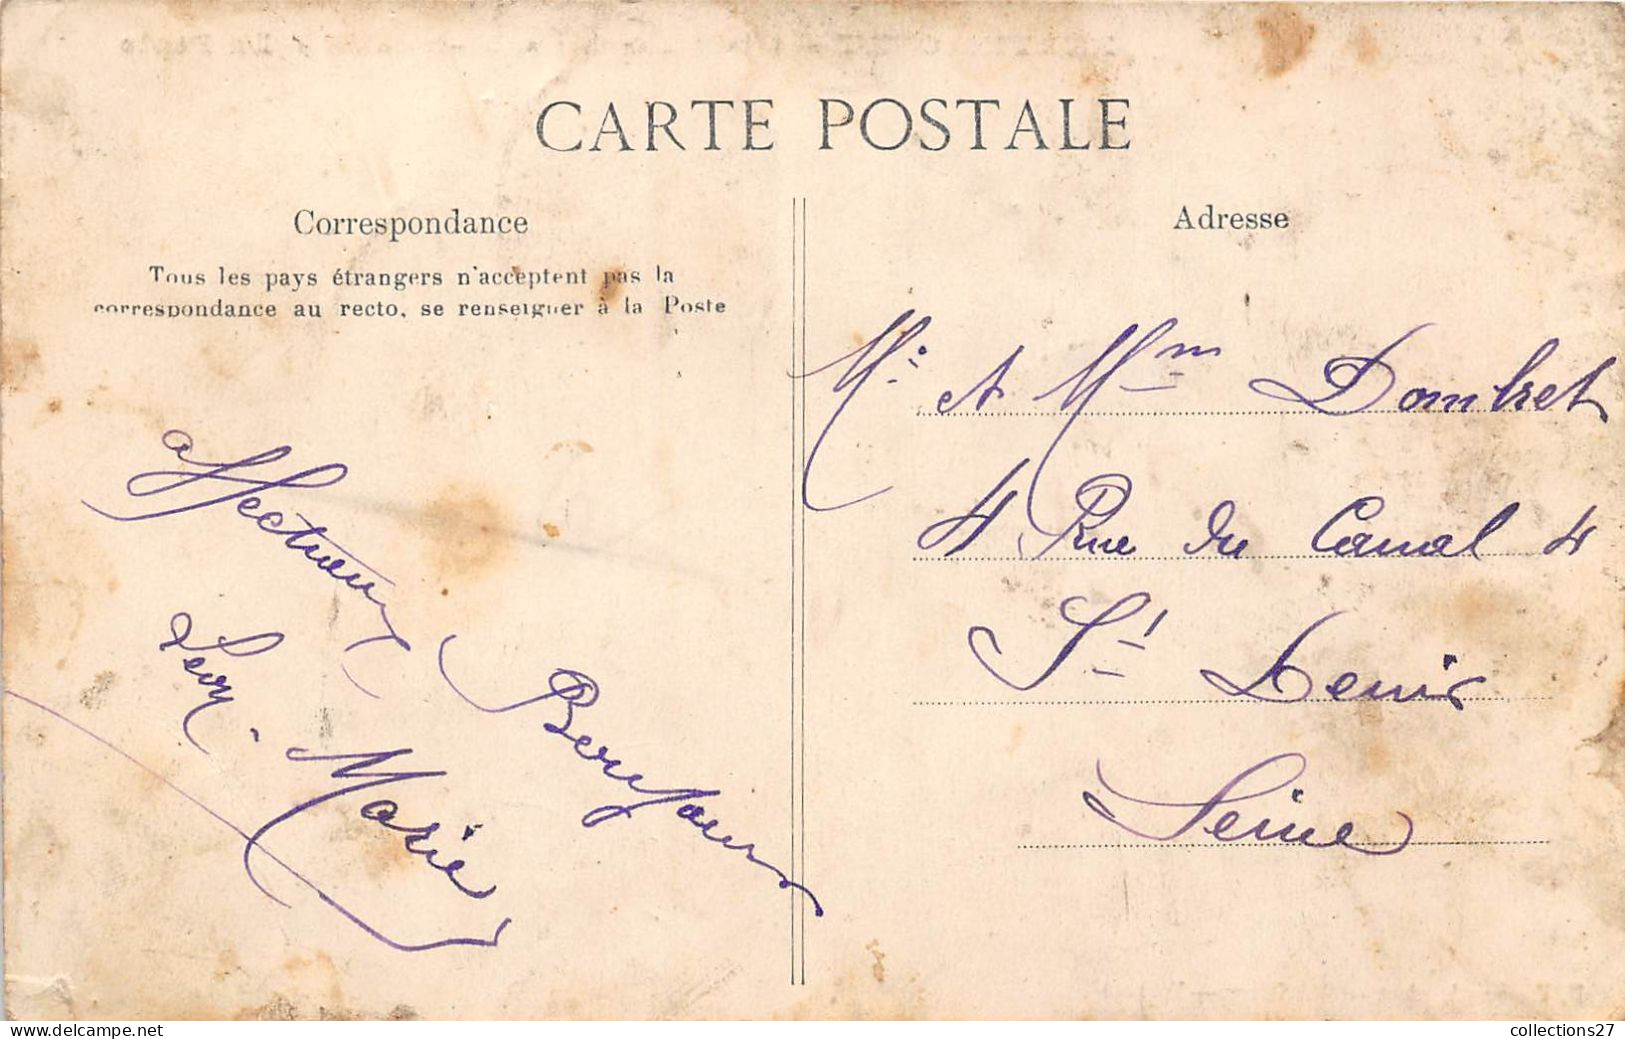 CARTE POSTALE
Correspondance
Tous les pays étrangers n'acceptent pas la
correspondance au recto, se renseigner à la Poste
affectueux
Bonjours
Léon. Marie
Adresse
Mr et Mm Dombret
4 Rue du Canal 4
St Denis
Seine
collections27